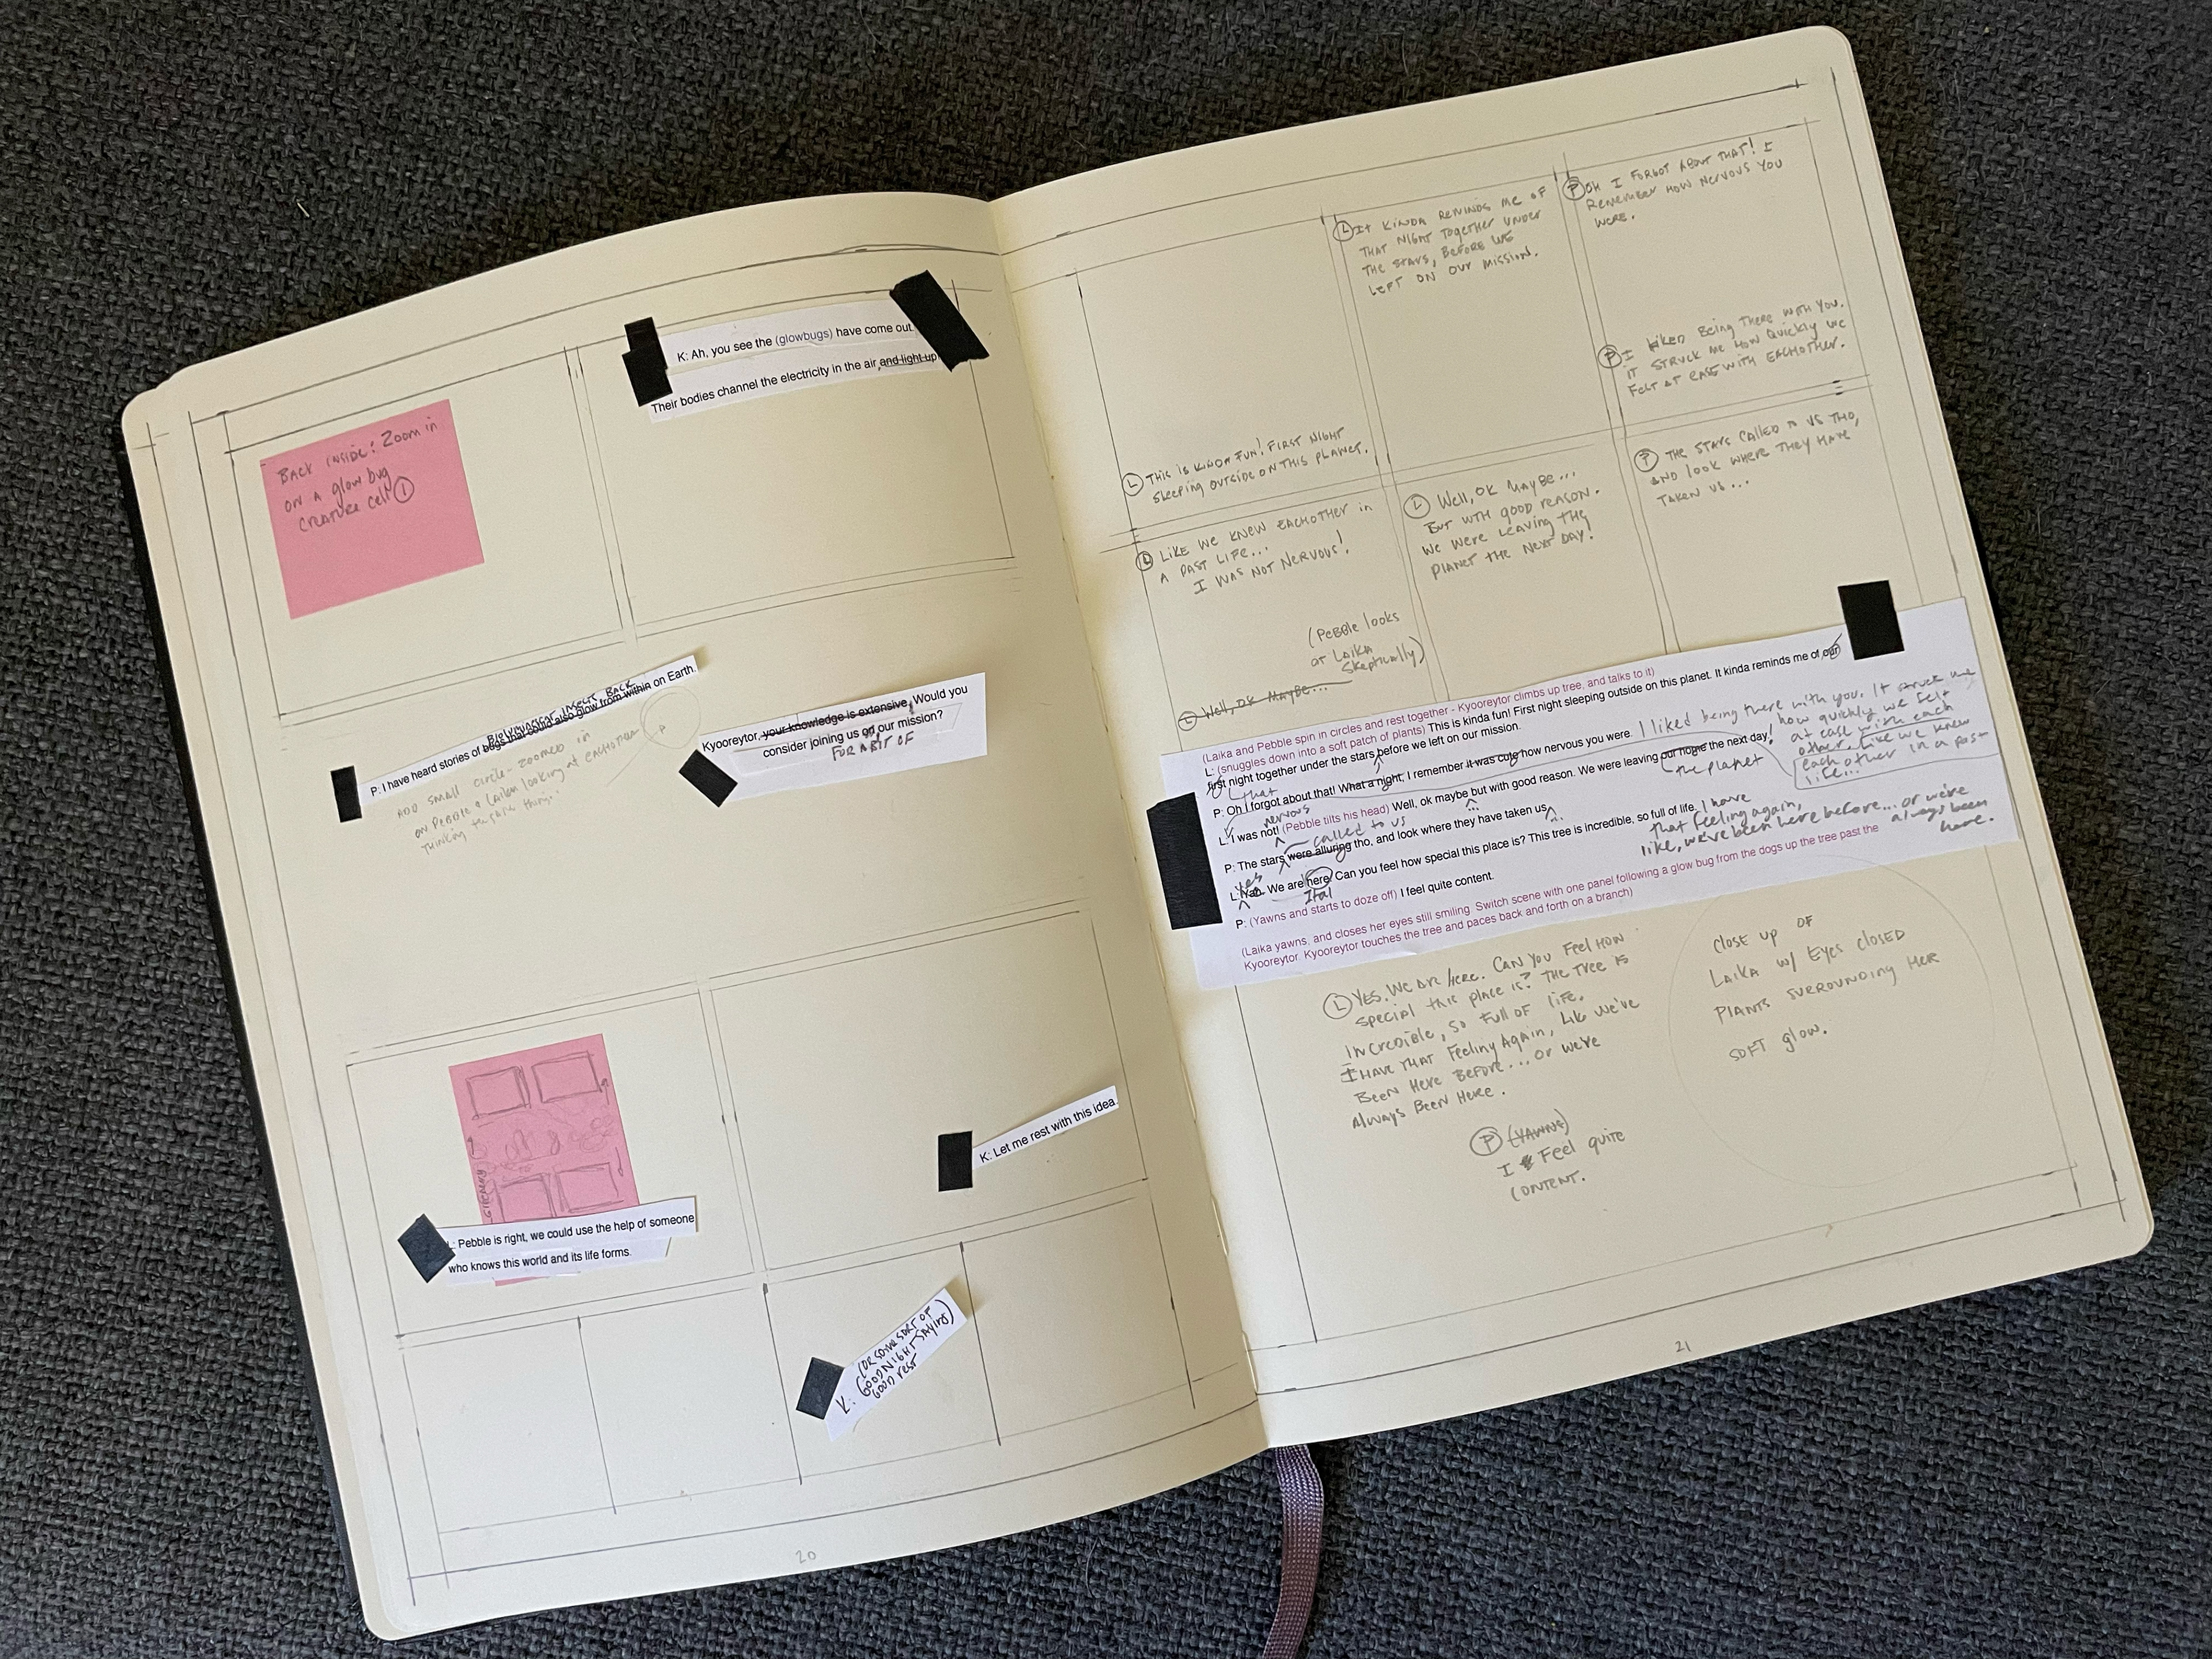 BACK INSIDE: Zoom in
on a glow bug
creature cell ①
K: Ah, you see the (glowbugs) have come out.
Their bodies channel the electricity in the air, and light up
Bioluminescent insects back
P: I have heard stories of bugs that could also glow from within on Earth.
Add small circle - zoomed in
on Pebble & Laika looking at eachother
thinking the same thing..
P
Kyooreytor, your knowledge is extensive, Would you
consider joining us on our mission?
FOR A BIT OF
L: Pebble is right, we could use the help of someone
who knows this world and its life forms.
K: Let me rest with this idea.
K: (OR SOME SORT OF
GOODNIGHT SAYING)
GOOD REST
20
Ⓛ THIS IS KINDA FUN! FIRST NIGHT
SLEEPING OUTSIDE ON THIS PLANET.
Ⓛ IT KINDA REMINDS ME OF
THAT NIGHT TOGETHER UNDER
THE STARS, BEFORE WE
LEFT ON OUR MISSION.
Ⓟ OH I FORGOT ABOUT THAT! I
REMEMBER HOW NERVOUS YOU
WERE.
Ⓟ I LIKED BEING THERE WITH YOU.
IT STRUCK ME HOW QUICKLY WE
FELT AT EASE WITH EACHOTHER.
LIKE WE KNEW EACHOTHER IN
A PAST LIFE...
I WAS NOT NERVOUS!
(Pebble looks
at Laika
skeptically)
Ⓛ Well, OK MAYBE...
Ⓛ Well, OK MAYBE...
BUT WITH GOOD REASON.
WE WERE LEAVING THE
PLANET THE NEXT DAY!
Ⓟ THE STARS CALLED TO US THO,
AND LOOK WHERE THEY HAVE
TAKEN US...
(Laika and Pebble spin in circles and rest together - Kyooreytor climbs up tree, and talks to it)
L: (snuggles down into a soft patch of plants) This is kinda fun! First night sleeping outside on this planet. It kinda reminds me of our
first night together under the stars before we left on our mission.
that
P: Oh I forgot about that! What a night, I remember it was cute how nervous you were.
I liked being there with you. It struck me
how quickly we felt
at ease with each
other, like we knew
each other in a past
life...
nervous
L: I was not! (Pebble tilts his head) Well, ok maybe but with good reason. We were leaving our home the next day!
...
the planet
called to us
P: The stars were alluring tho, and look where they have taken us
...
Yes
L: Yah. We are here! Can you feel how special this place is? This tree is incredible, so full of life. I have
that feeling again,
like, we've been here before... or we're
always been
here.
Ital
P: (Yawns and starts to doze off) I feel quite content.
(Laika yawns, and closes her eyes still smiling. Switch scene with one panel following a glow bug from the dogs up the tree past the
Kyooreytor. Kyooreytor touches the tree and paces back and forth on a branch)
Ⓛ YES. WE ARE HERE. CAN YOU FEEL HOW
SPECIAL THIS PLACE IS? THE TREE IS
INCREDIBLE, SO FULL OF LIFE.
I HAVE THAT FEELING AGAIN, LIKE WE'VE
BEEN HERE BEFORE... OR WE'RE
ALWAYS BEEN HERE.
Ⓟ (YAWNS)
I FEEL QUITE
CONTENT.
CLOSE UP OF
LAIKA W/ EYES CLOSED
PLANTS SURROUNDING HER
SOFT GLOW.
21